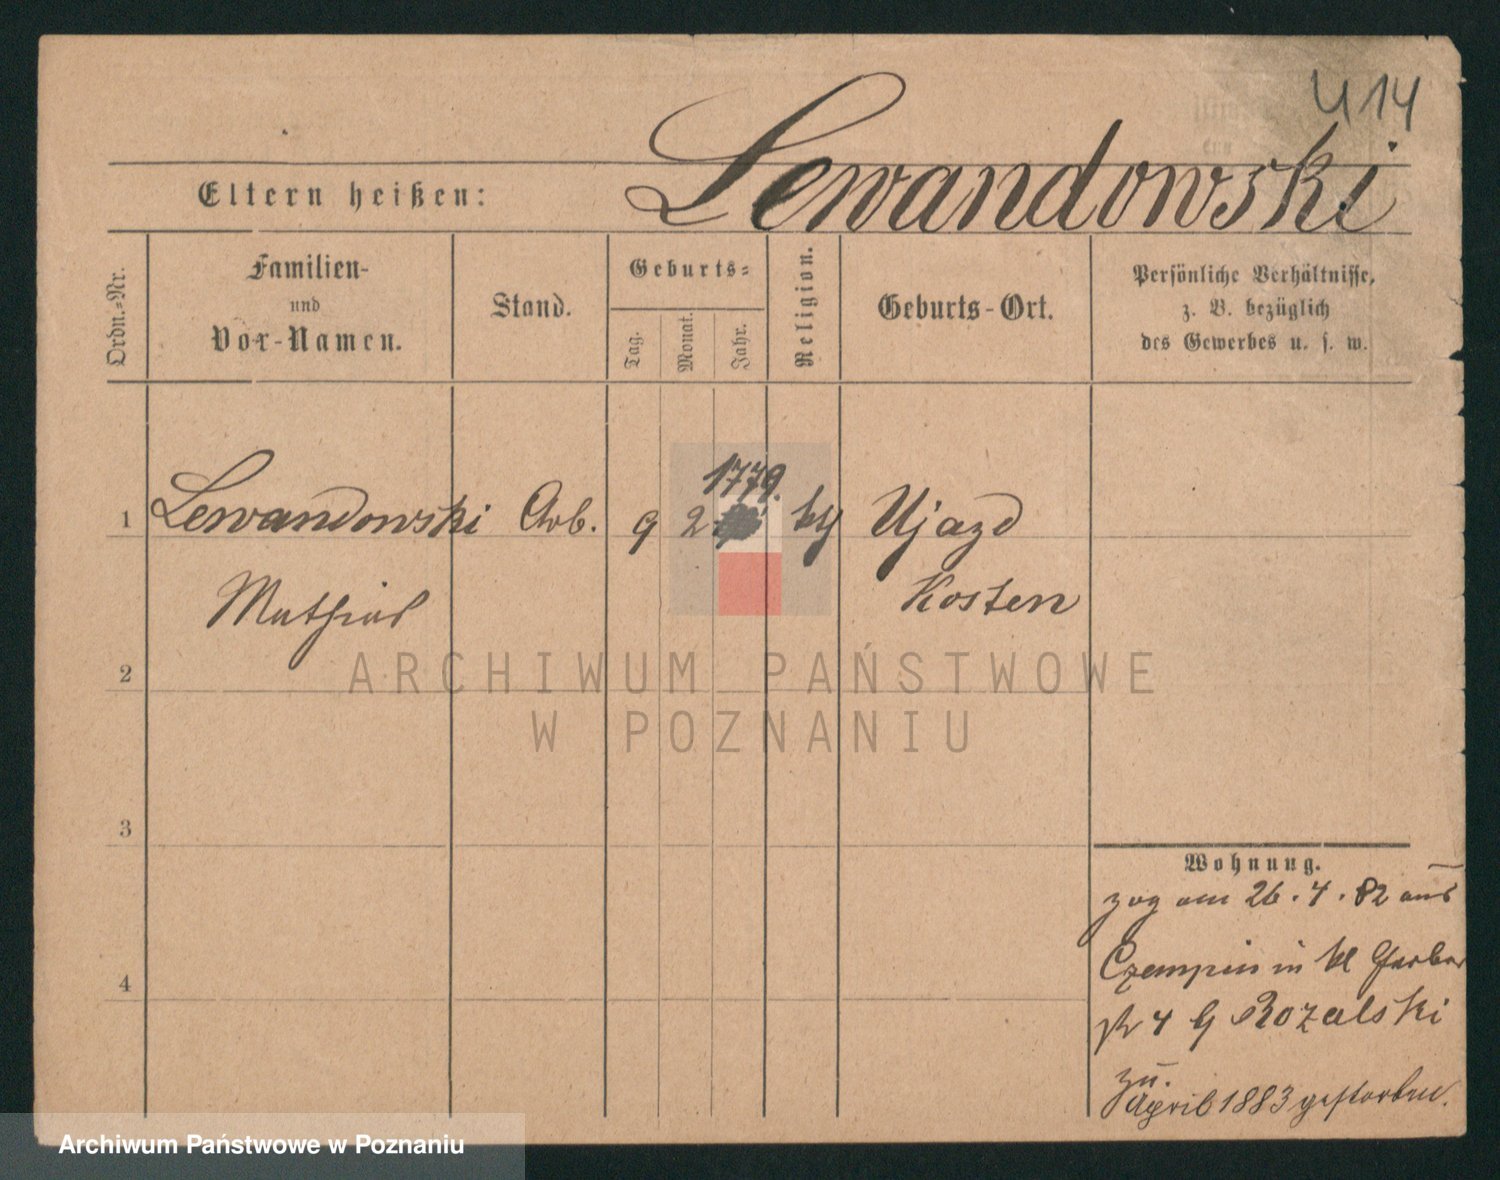 414
Lewandowski
Eltern heißen:
Ordn.-Nr.
Familien-
und
Vor-Namen.
Stand.
Geburts-
Tag.
Monat.
Jahr.
Religion.
Geburts-Ort.
Persönliche Verhältnisse,
z. B. bezüglich
des Gewerbes u. s. w.
1779.
1 Lewandowski Arb. 9 2 Ujazd
Mathias Kosten
2
3
4
Wohnung.
zog am 26.4.82 aus
Czempin in kl Gerber
4 Rozalski
zu.
April 1883 gestorben.
ARCHIWUM PAŃSTWOWE
W POZNANIU
Archiwum Państwowe w Poznaniu